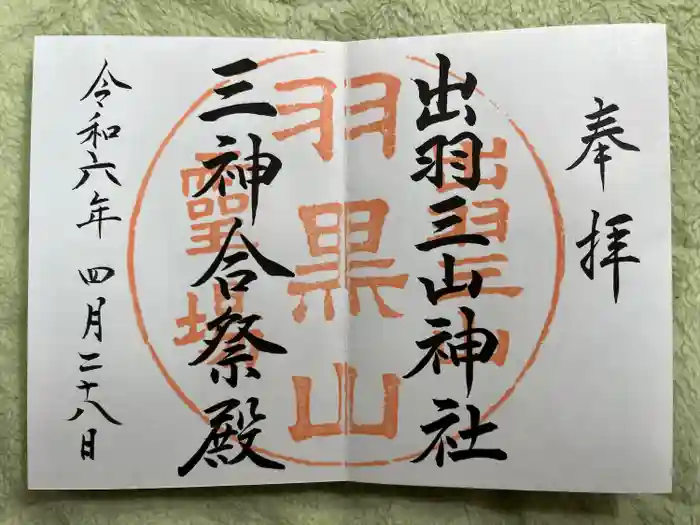 奉拝
出羽三山神社
三神合祭殿
令和六年 四月二十八日
出羽三山
羽黒山
霊場